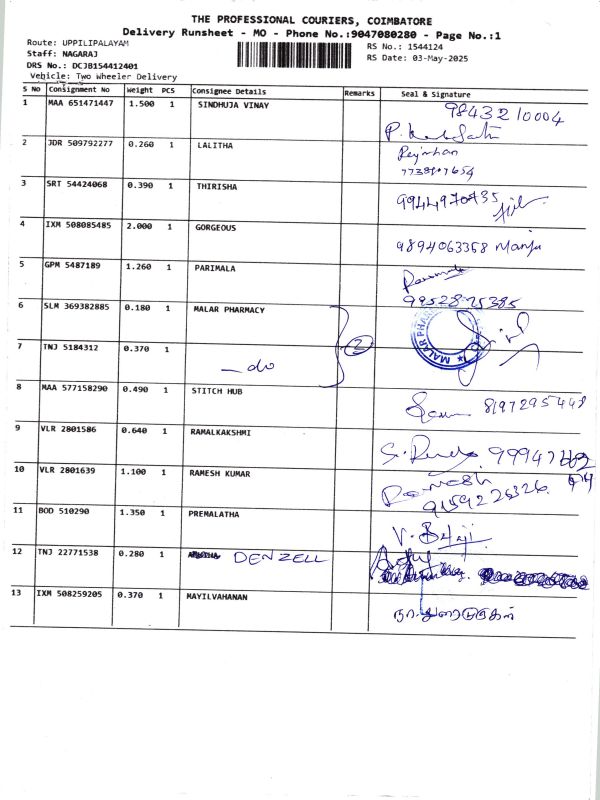 THE PROFESSIONAL COURIERS, COIMBATORE
Delivery Runsheet - MO - Phone No.:9047080280 - Page No.:1
Route: UPPILIPALAYAM
RS No.: 1544124
Staff: NAGARAJ
RS Date: 03-May-2025
DRS No.: DCJB154412401
Vehicle: Two Wheeler Delivery
S No Consignment No Weight PCS Consignee Details Remarks Seal & Signature
1 MAA 651471447 1.500 1 SINDHUJA VINAY 9843210004
2 JDR 509792277 0.260 1 LALITHA
3 SRT 54424068 0.390 1 THIRISHA 9944970735
4 IXM 508085485 2.000 1 GORGEOUS 9894063358 Manju
5 GPM 5487189 1.260 1 PARIMALA
9952875385
6 SLM 369382885 0.180 1 MALAR PHARMACY MALAR PHAR
7 TNJ 5184312 0.370 1 - do 2
8 MAA 577158290 0.490 1 STITCH HUB 8197295448
9 VLR 2801586 0.640 1 RAMALKAKSHMI
10 VLR 2801639 1.100 1 RAMESH KUMAR Ramesh
9159226326
11 BOD 510290 1.350 1 PREMALATHA V. Balaji
12 TNJ 22771538 0.280 1 DENZELL
13 IXM 508259205 0.370 1 MAYILVAHANAN